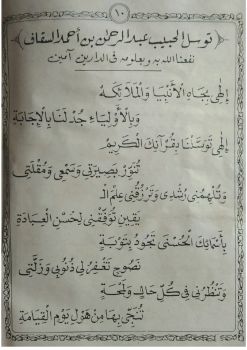 ١٠
توسل الحبيب عبد الرحمن بن أحمد السقاف
نفعنا الله به وبعلومه فى الدارين آمين
إِلٰهِى بِجَاهِ الْأَنْبِيَا وَالْمَلَائِكَهْ
وَبِالْأَوْلِيَاءِ جُدْ لَنَا بِالْإِجَابَةِ
إِلٰهِى تَوَسَّلْنَا بِقُرْآنِكَ الْكَرِيمْ
تُنَوِّرْ بَصِيرَتِى وَسَمْعِى وَمُقْلَتِى
وَتُلْهِمُنِى رُشْدِى وَتَرْزُقُنِى عِلْمَ الْـ
ـيَقِينِ تُوَفِّقْنِى لِحُسْنِ الْعِبَادَةِ
بِأَسْمَائِكَ الْحُسْنَى تَجُودُ بِتَوْبَةٍ
نَصُوحٍ تَغْفِرْ لِى ذُنُوبِى وَزَلَّتِى
وَتَنْظُرُنِى فِى كُلِّ حَالٍ وَلَمْحَةٍ
تُنَجِّى بِهَا مِنْ هَوْلِ يَوْمِ الْقِيَامَةِ